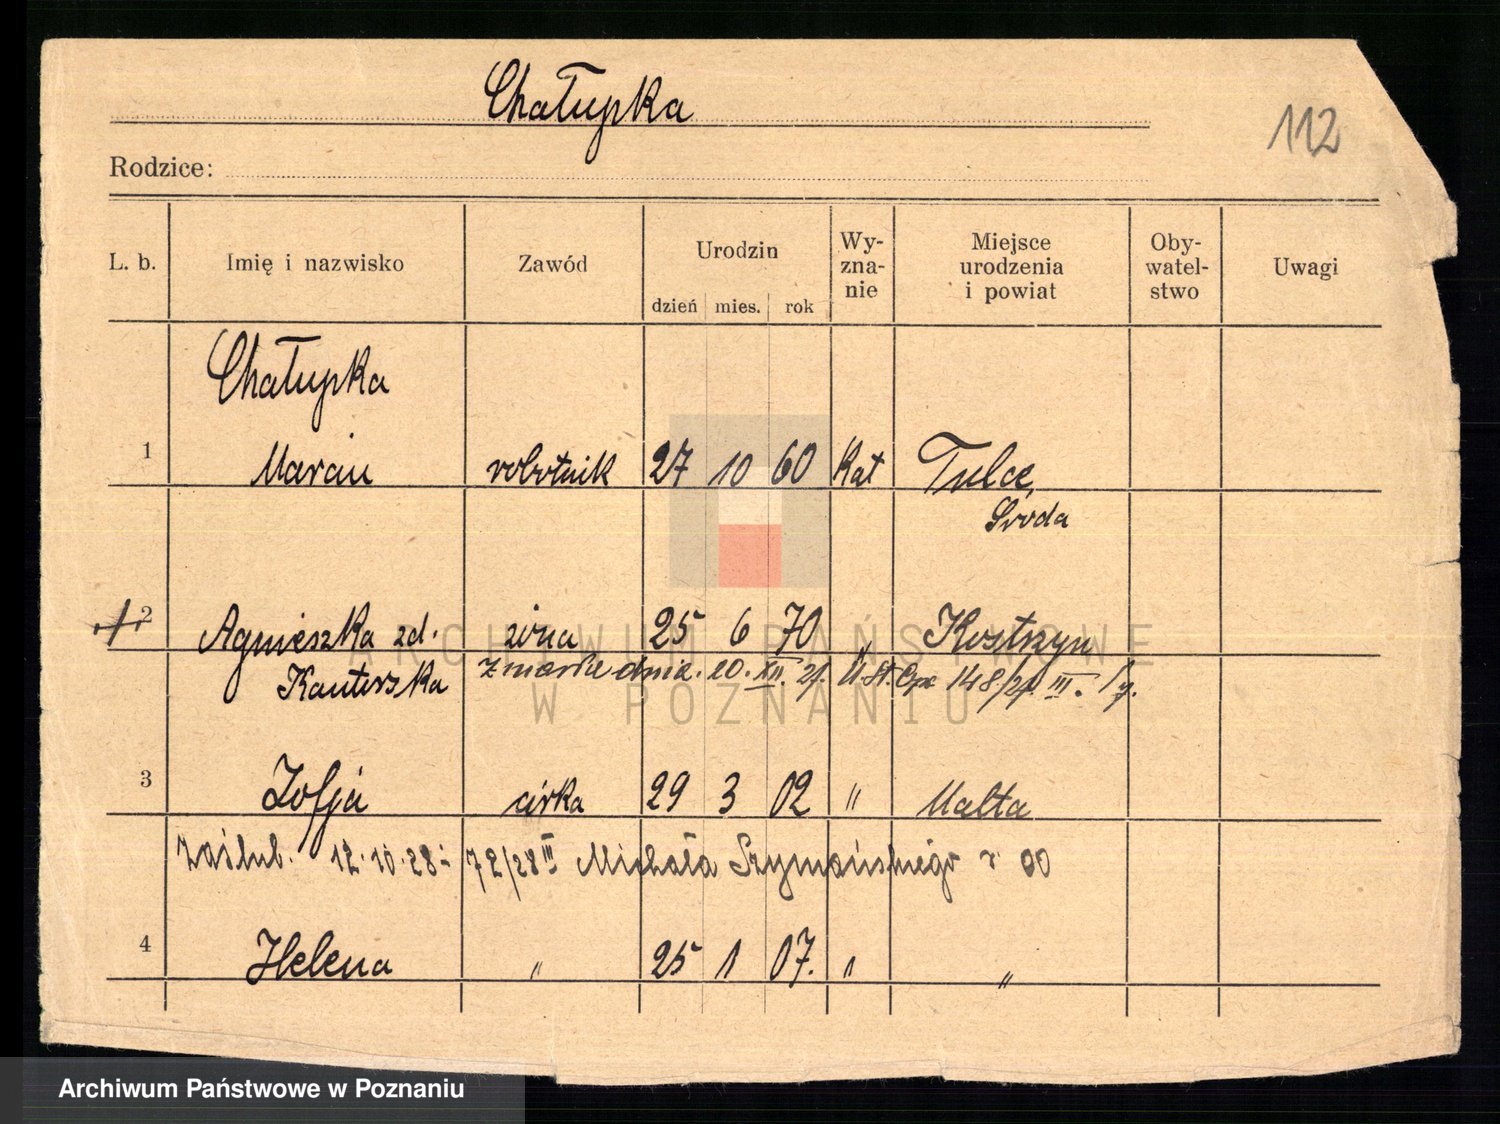 Chałupka
112
Rodzice:
L. b. Imię i nazwisko Zawód Urodzin Wy- Miejsce Oby- Uwagi
zna- urodzenia watel-
nie i powiat stwo
dzień mies. rok
Chałupka
1 Marcin robotnik 27 10 60 Kat Tulce,
Środa
2 Agnieszka zd. żona 25 6 70 Kostrzyn
Kanterska zmarła dnia 20. XII. 27. U. St. 148/27 III.
3 Zofja córka 29 3 02 " Malta
Zaślub. 12.10.28 72/28 III Michała Szymańskiego 00
4 Helena " 25 1 07. " "
ARCHIWUM PAŃSTWOWE
W POZNANIU
Archiwum Państwowe w Poznaniu